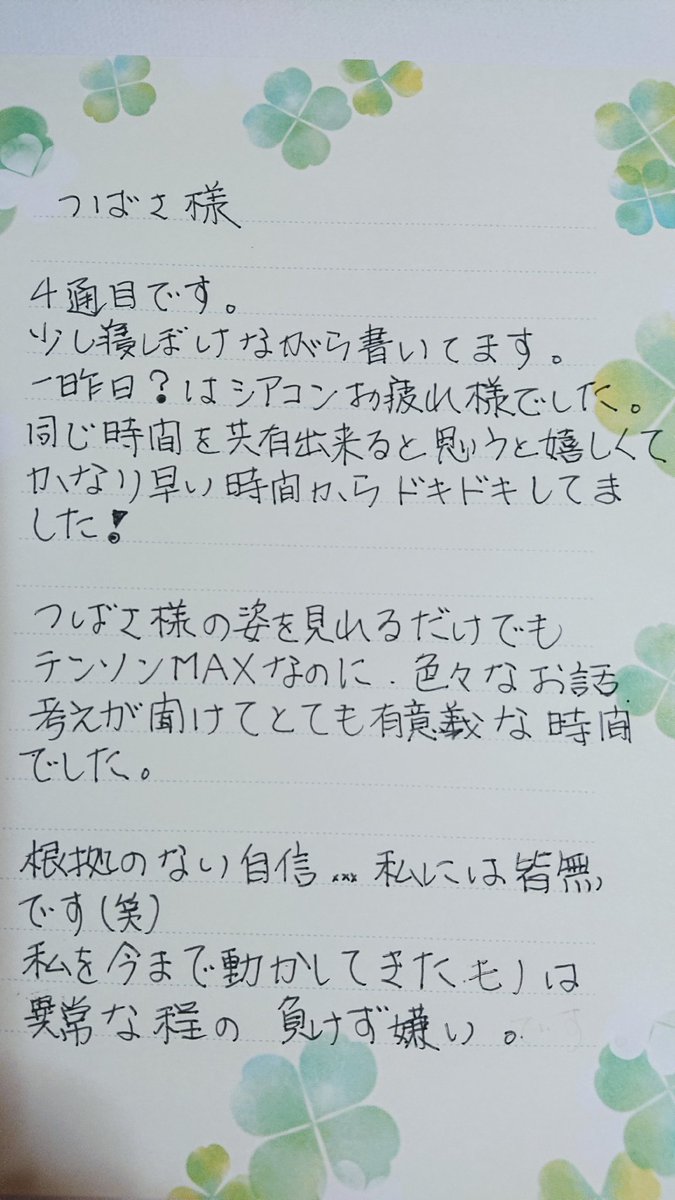 つばさ様
4通目です。
少し寝ぼけながら書いてます。
一昨日?はシアコンお疲れ様でした。
同じ時間を共有出来ると思うと嬉しくて
かなり早い時間からドキドキしてま
した!
つばさ様の姿を見れるだけでも
テンソンMAXなのに、色々なお話
考えが聞けてとても有意義な時間
でした。
根拠のない自信…私には皆無
です(笑)
私を今まで動かしてきたモノは
異常な程の 負けず嫌い。です